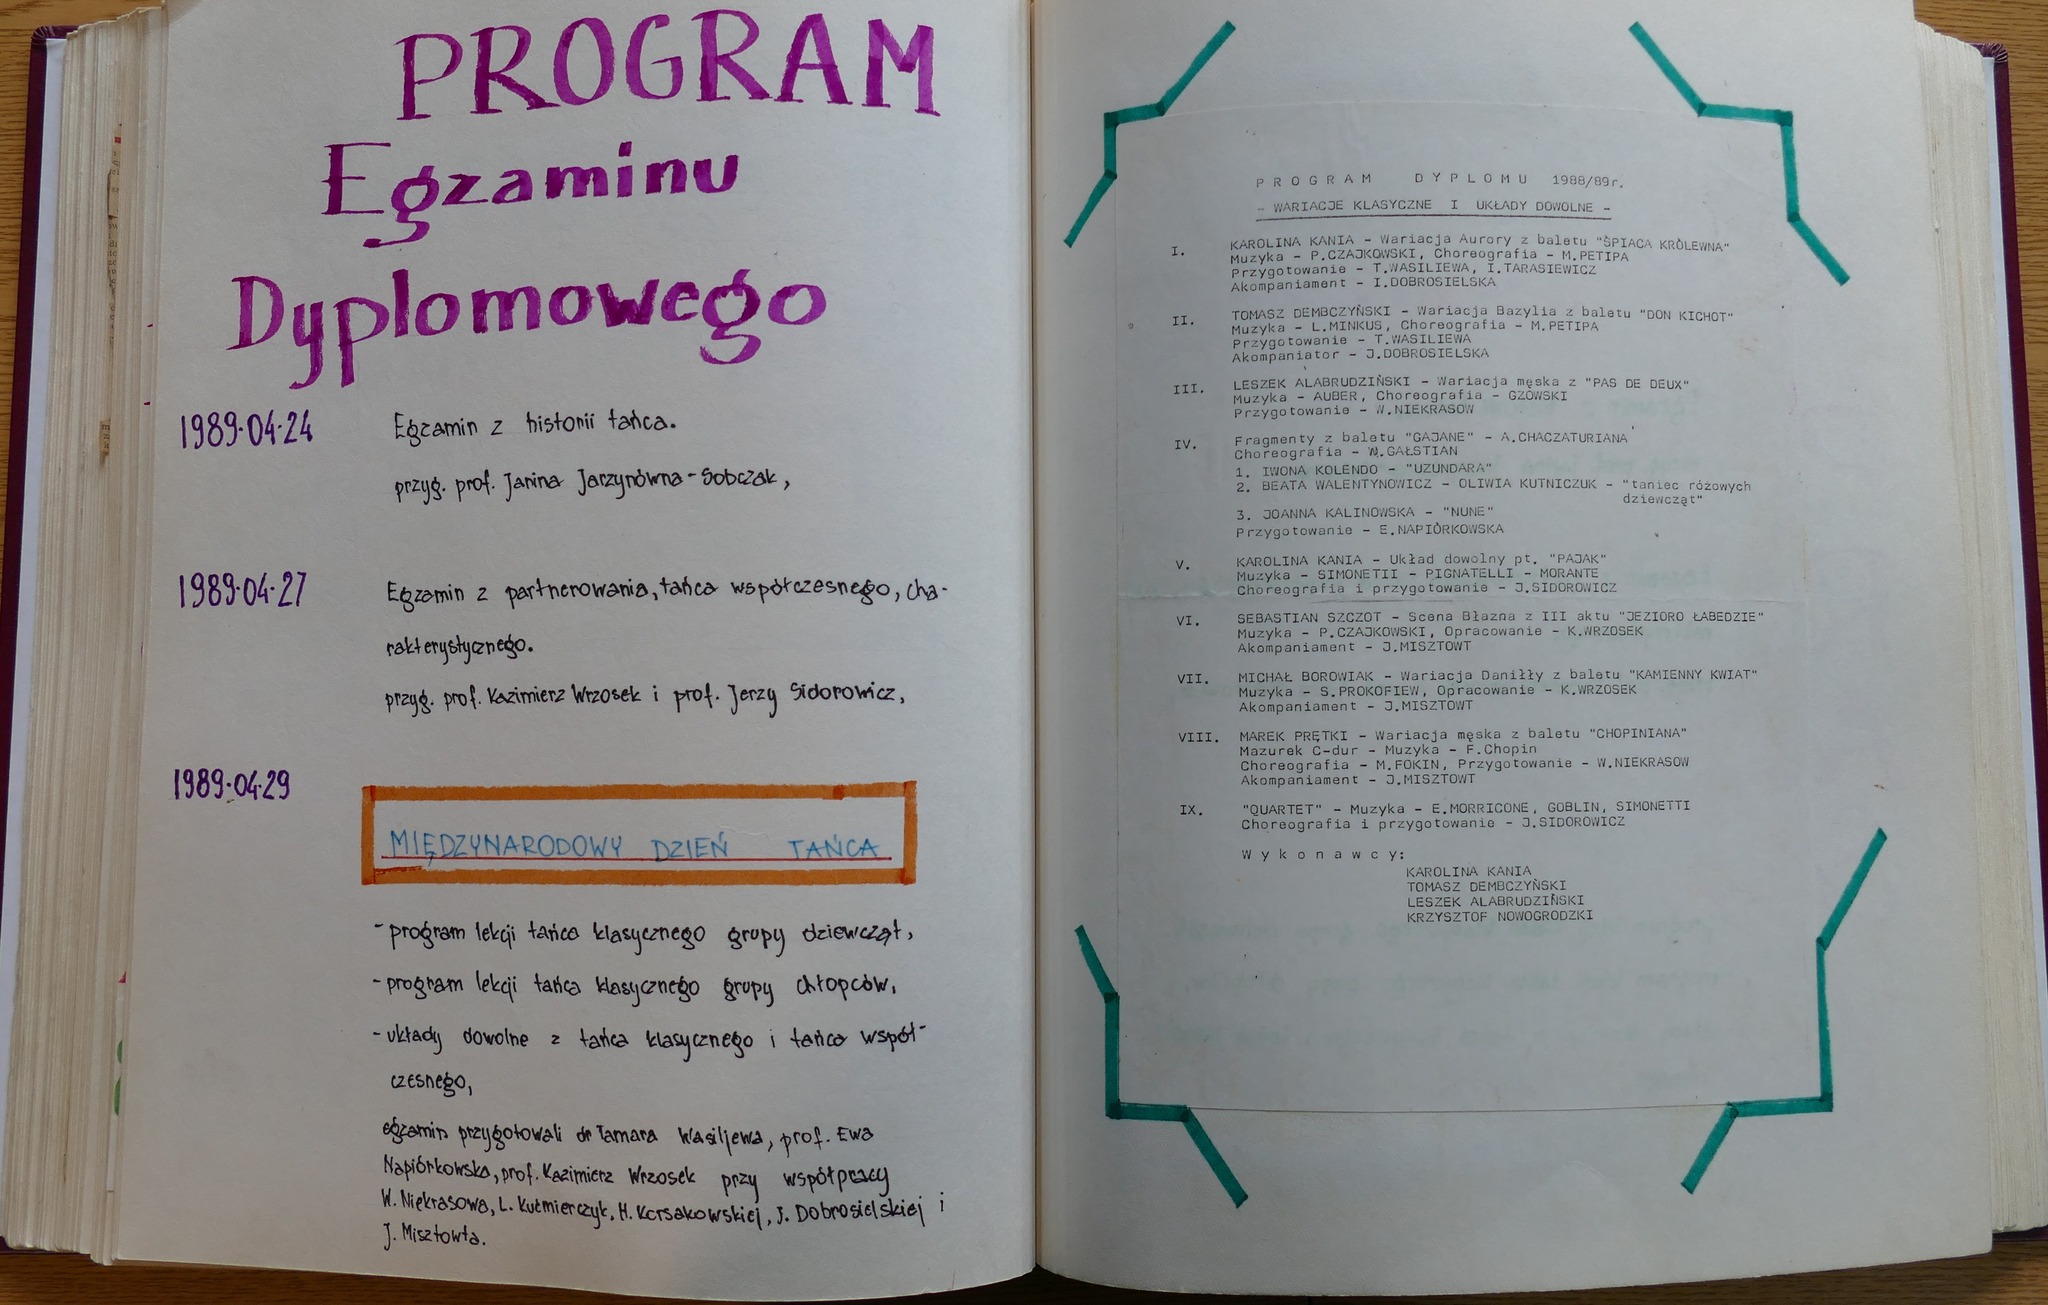 PROGRAM
Egzaminu
Dyplomowego
1989.04.24 Egzamin z historii tańca.
przyg. prof. Janina Jarzynówna-Sobczak,
1989.04.27 Egzamin z partnerowania, tańca współczesnego, cha-
rakterystycznego.
przyg. prof. Kazimierz Wrzosek i prof. Jerzy Sidorowicz,
1989.04.29
MIĘDZYNARODOWY DZIEŃ TAŃCA
- program lekcji tańca klasycznego grupy dziewcząt,
- program lekcji tańca klasycznego grupy chłopców,
- układy dowolne z tańca klasycznego i tańca współ-
czesnego,
egzamin przygotowali dr Tamara Wasiljewa, prof. Ewa
Napiórkowska, prof. Kazimierz Wrzosek przy współpracy
W. Niekrasowa, L. Kuźmierczyk, H. Korsakowskiej, J. Dobrosielskiej i
J. Misztowta.
PROGRAM DYPLOMU 1988/89r.
- WARIACJE KLASYCZNE I UKŁADY DOWOLNE -
I. KAROLINA KANIA - Wariacja Aurory z baletu "ŚPIACA KRÓLEWNA"
Muzyka - P.CZAJKOWSKI, Choreografia - M.PETIPA
Przygotowanie - T.WASILIEWA, I.TARASIEWICZ
Akompaniament - I.DOBROSIELSKA
II. TOMASZ DEMBCZYŃSKI - Wariacja Bazylia z baletu "DON KICHOT"
Muzyka - L.MINKUS, Choreografia - M.PETIPA
Przygotowanie - T.WASILIEWA
Akompaniator - J.DOBROSIELSKA
III. LESZEK ALABRUDZIŃSKI - Wariacja męska z "PAS DE DEUX"
Muzyka - AUBER, Choreografia - GZOWSKI
Przygotowanie - W.NIEKRASOW
IV. Fragmenty z baletu "GAJANE" - A.CHACZATURIANA
Choreografia - W.GAŁSTIAN
1. IWONA KOLENDO - "UZUNDARA"
2. BEATA WALENTYNOWICZ - OLIWIA KUTNICZUK - "taniec różowych
dziewcząt"
3. JOANNA KALINOWSKA - "NUNE"
Przygotowanie - E.NAPIÓRKOWSKA
V. KAROLINA KANIA - Układ dowolny pt. "PAJAK"
Muzyka - SIMONETII - PIGNATELLI - MORANTE
Choreografia i przygotowanie - J.SIDOROWICZ
VI. SEBASTIAN SZCZOT - Scena Błazna z III aktu "JEZIORO ŁABEDZIE"
Muzyka - P.CZAJKOWSKI, Opracowanie - K.WRZOSEK
Akompaniament - J.MISZTOWT
VII. MICHAŁ BOROWIAK - Wariacja Daniłły z baletu "KAMIENNY KWIAT"
Muzyka - S.PROKOFIEW, Opracowanie - K.WRZOSEK
Akompaniament - J.MISZTOWT
VIII. MAREK PRĘTKI - Wariacja męska z baletu "CHOPINIANA"
Mazurek C-dur - Muzyka - F.Chopin
Choreografia - M.FOKIN, Przygotowanie - W.NIEKRASOW
Akompaniament - J.MISZTOWT
IX. "QUARTET" - Muzyka - E.MORRICONE, GOBLIN, SIMONETTI
Choreografia i przygotowanie - J.SIDOROWICZ
Wykonawcy:
KAROLINA KANIA
TOMASZ DEMBCZYŃSKI
LESZEK ALABRUDZIŃSKI
KRZYSZTOF NOWOGRODZKI